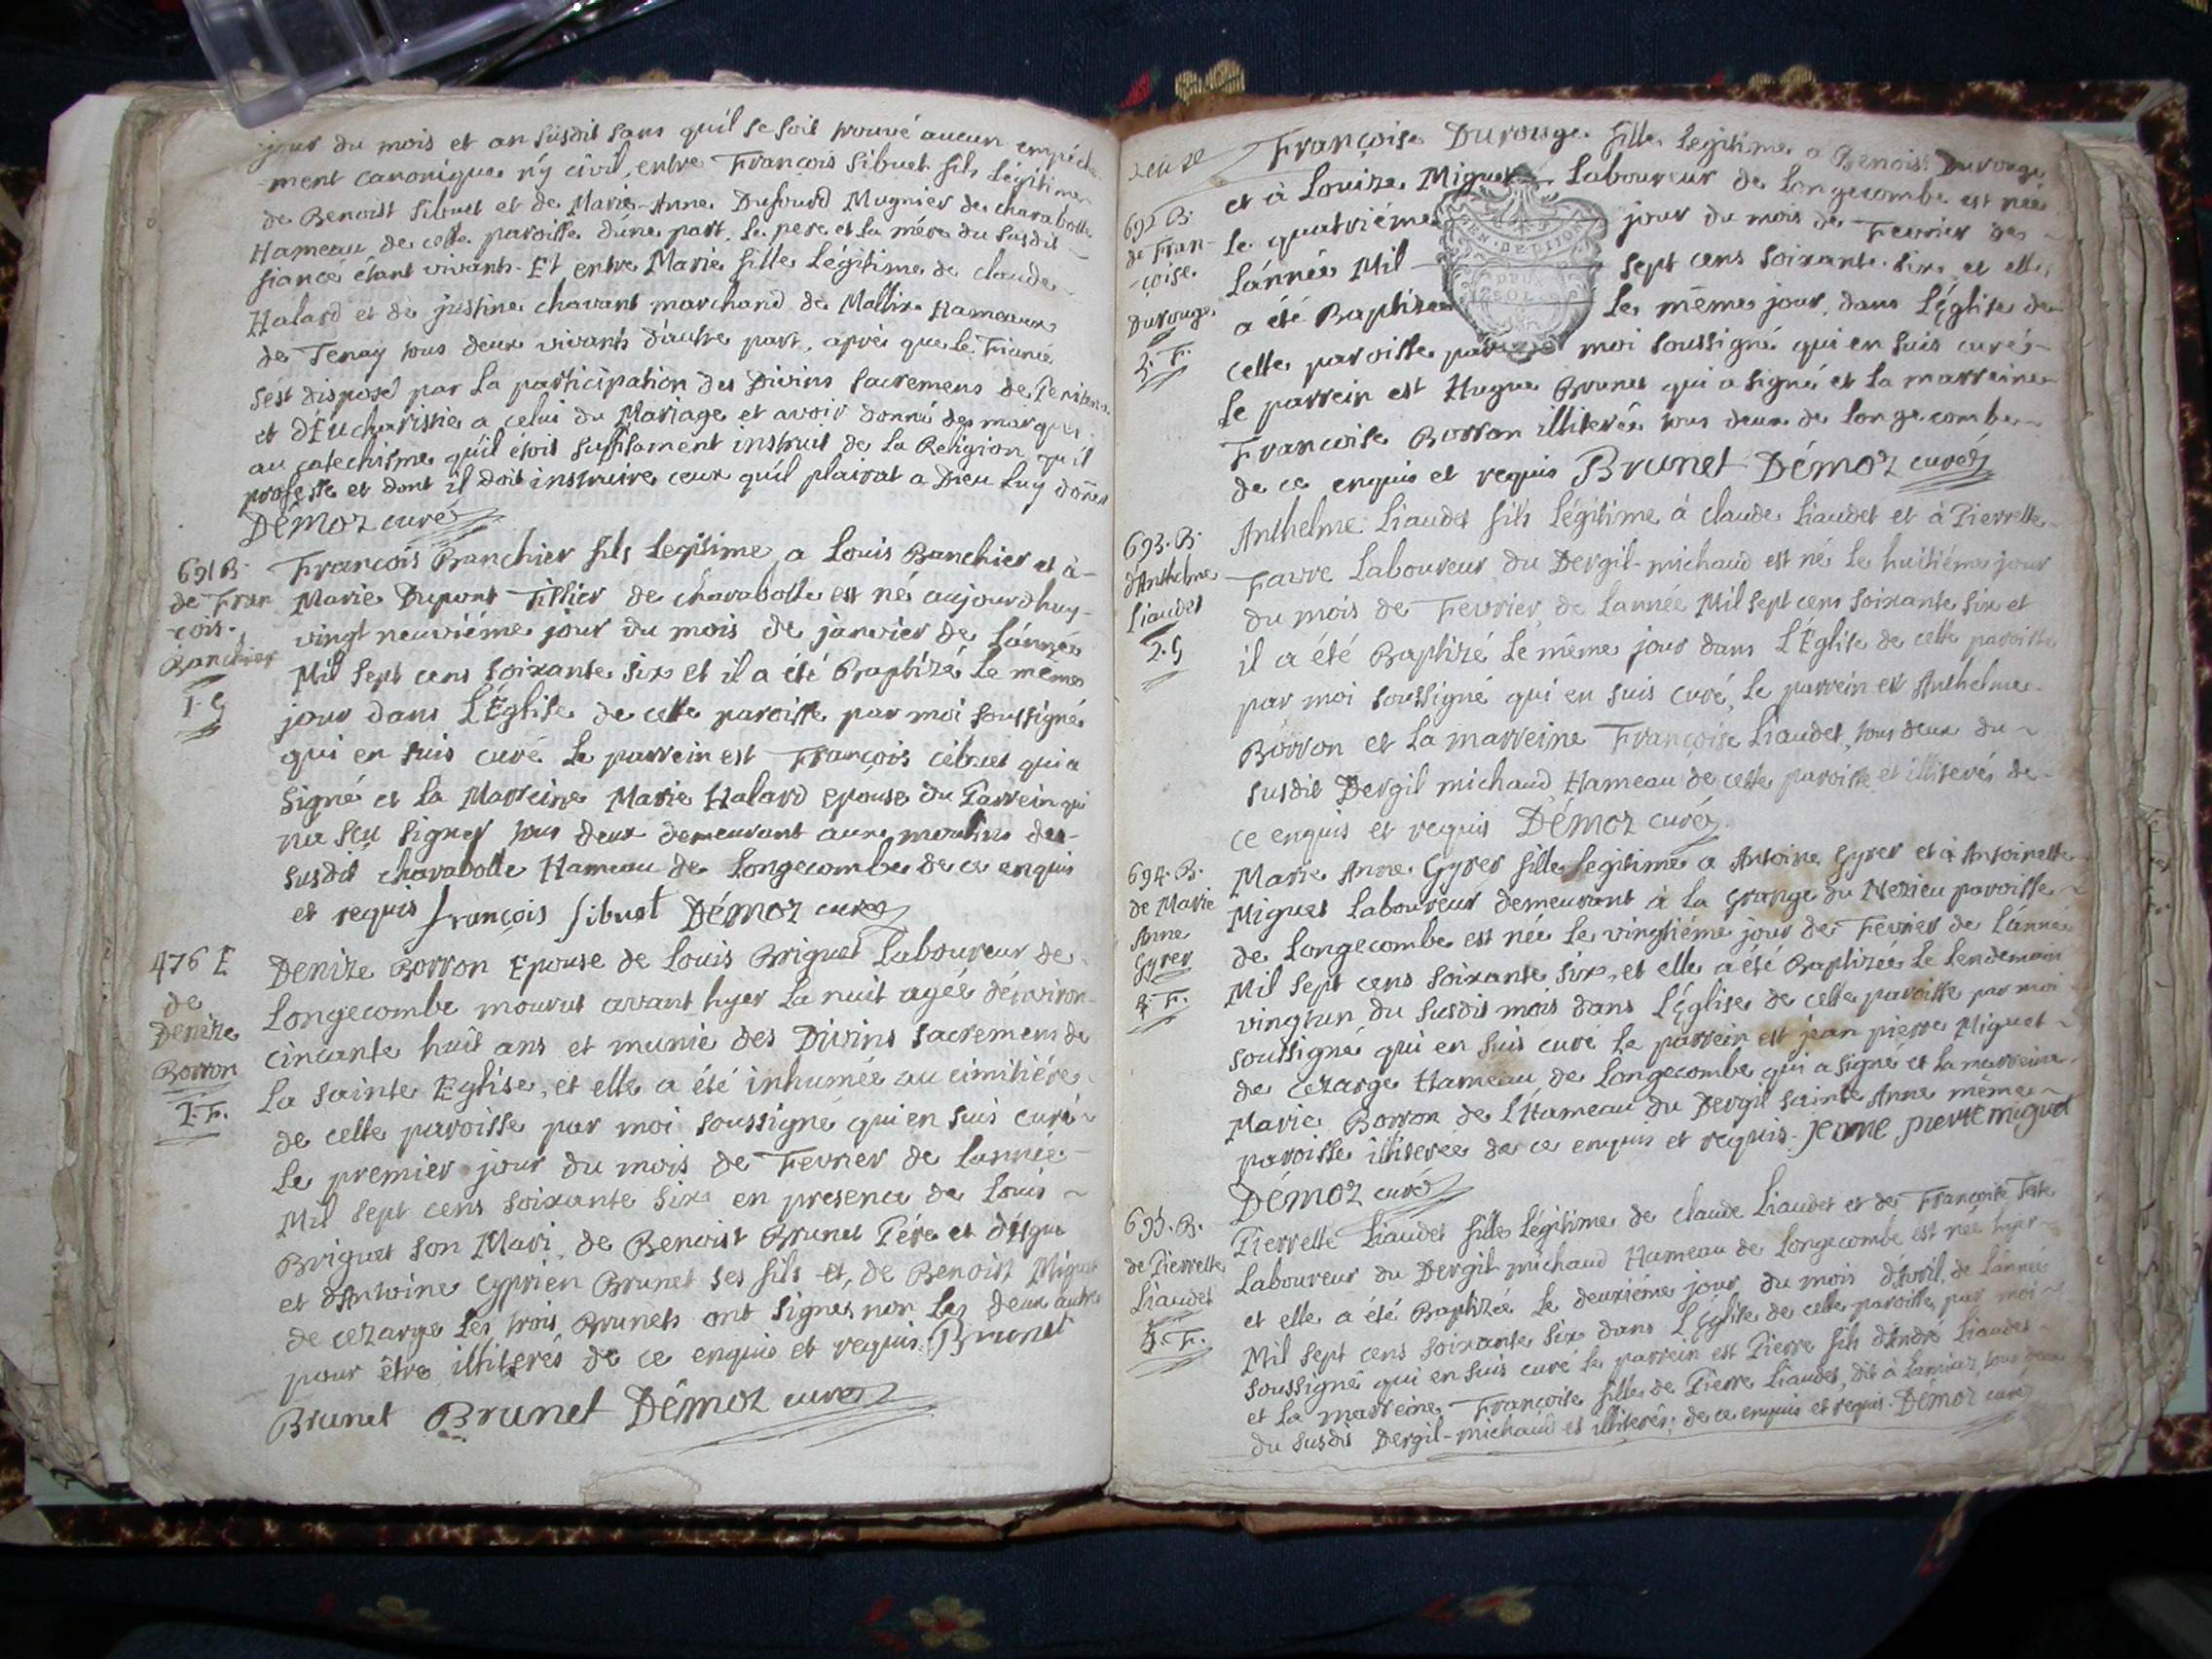 jour du mois et an susdit sans qu'il se soit trouvé aucun empéche
ment canonique n'y civil, entre François Sibuet fils Légitime
de Benoist Sibuet et de Marie-Anne Dufourd Mugnier de charabotte
Hameau de cette paroisse d'une part, le pere et la mére du susdit
fiancé étant vivants. Et entre Marie fille Légitime de claude
Halard et de justine chavant marchand de Mallix Hameaux
de Tenay tous deux vivants d'autre part, aprés que le Fiancé
s'est disposé par La participation des Divins sacremens de Penitence
et d'Eucharistie a celui du Mariage et avoir donné des marques
au catechisme qu'il étoit suffisament instruit de La Religion qu'il
professe et dont il doit instruire ceux qu'il plairat a Dieu Luy donner
Démoz curé
691 B.
de Fran
-cois.
Banchier
1. G
François Banchier fils Legitime a Louis Banchier et à-
Marie Dupont Tissier de charabotte est né aujourdhuy-
vingt neuviéme jour du mois de janvier de L'année
Mil sept cens soixante six et il a été Baptizé Le méme
jour dans L'Église de cette paroisse par moi soussigné
qui en suis curé Le parrein est François cibuet qui a
signé et La Marreine Marie Halard epouse du Parrein qui
na sçu signer tous deux demeurant aux moulins de-
susdit charabotte Hameau de Longecombe de ce enquis
et requis françois sibuet Démoz curé
476 E
de
Denize
Borron
1. F.
Denize Borron Epouse de Louis Briguet Laboureur de
Longecombe mourut avant hyer La nuit agée d'environ-
cincante huit ans et munie des Divins sacremens de
La sainte Eglise, et elle a été inhumée au cimitiére
de cette paroisse par moi soussigné qui en suis curé~
Le premier jour du mois de Fevrier de Lannée-
Mil sept cens soixante six en presence de Louis ~
Briguet son Mari, de Benoist Brunet Pére et d'Hgue
et d'Antoine Cyprien Brunet ses fils et, de Benoist Miguet
de cezarge Les trois Brunets ont signés non Les deux autres
pour être illiterés de ce enquis et requis. Brunet
Brunet Brunet Démoz curé
deuze
692 B.
de Fran-
-çoise.
Durouge
3. F.
Françoise Durouge fille Legitime a Benoist Durouge
et à Louize Miguet Laboureur de Longecombe est née
Le quatriéme jour du mois de Fevrier de ~
L'année Mil sept cens soixante six et elle
a été Baptizée Le méme jour, dans L'Église de
cette paroisse par moi soussigné qui en suis curé-
Le parrein est Hugue Brunet qui a signé et La marreine
Francoise Borron illiterée tous deux de Longecombe~
de ce enquis et requis Brunet Démoz curé
693. B.
d'Anthelme
Liaudet
2. G
Anthelme Liaudet fils Légitime à claude Liaudet et à Pierrette
Favre Laboureur du Dergil-michaud est né Le huitiéme jour
du mois de Fevrier, de Lannée Mil sept cens soixante six et
il a été Baptizé Le même jour dans L'Église de cette paroisse
par moi soussigné qui en suis curé, Le parrein est Anthelme
Borron et La marreine Françoise Liaudet, tous deux du ~
susdit Dergil michaud Hameau de cette paroisse et illiterés de
ce enquis et requis Démoz curé
694. B.
de Marie
Anne
Gyrer
4. F.
Marie Anne Gyrer fille Legitime a Antoine Gyrer et à Antoinette
Miguet Laboureur demeurant à la Grange du Nezieu paroisse ~
de Longecombe est née Le vingtiéme jour de Fevrier de L'année
Mil sept cens soixante six, et elle a été Baptizée Le Lendemain
vingtun du susdit mois dans L'Église de cette paroisse par moi
soussigné qui en suis curé Le parrein est jean pierre Miguet ~
de cezarge Hameau de Longecombe qui a signé et La marreine
Marie Borron de L'Hameau du Dergil sainte Anne même ~
paroisse illiterée de ce enquis et requis. jeane pierre miguet
Démoz curé
695. B.
de Pierrette
Liaudet
5. F.
Pierrette Liaudet fille Légitime de claude Liaudet et de Françoise Teste
Laboureur du Dergil-michaud Hameau de Longecombe est née hyer ~
et elle a été Baptizée Le deuxiéme jour du mois d'Avril, de L'année
Mil sept cens soixante six dans L'Église de cette paroisse, par moi ~
soussigné qui en suis curé Le parrein est Pierre fils d'André Liaudet ~
et La marreine Françoise fille de Pierre Liaudet, dit à Lamiaz, tous deux
du susdit Dergil-michaud et illiterés; de ce enquis et requis. Démoz curé